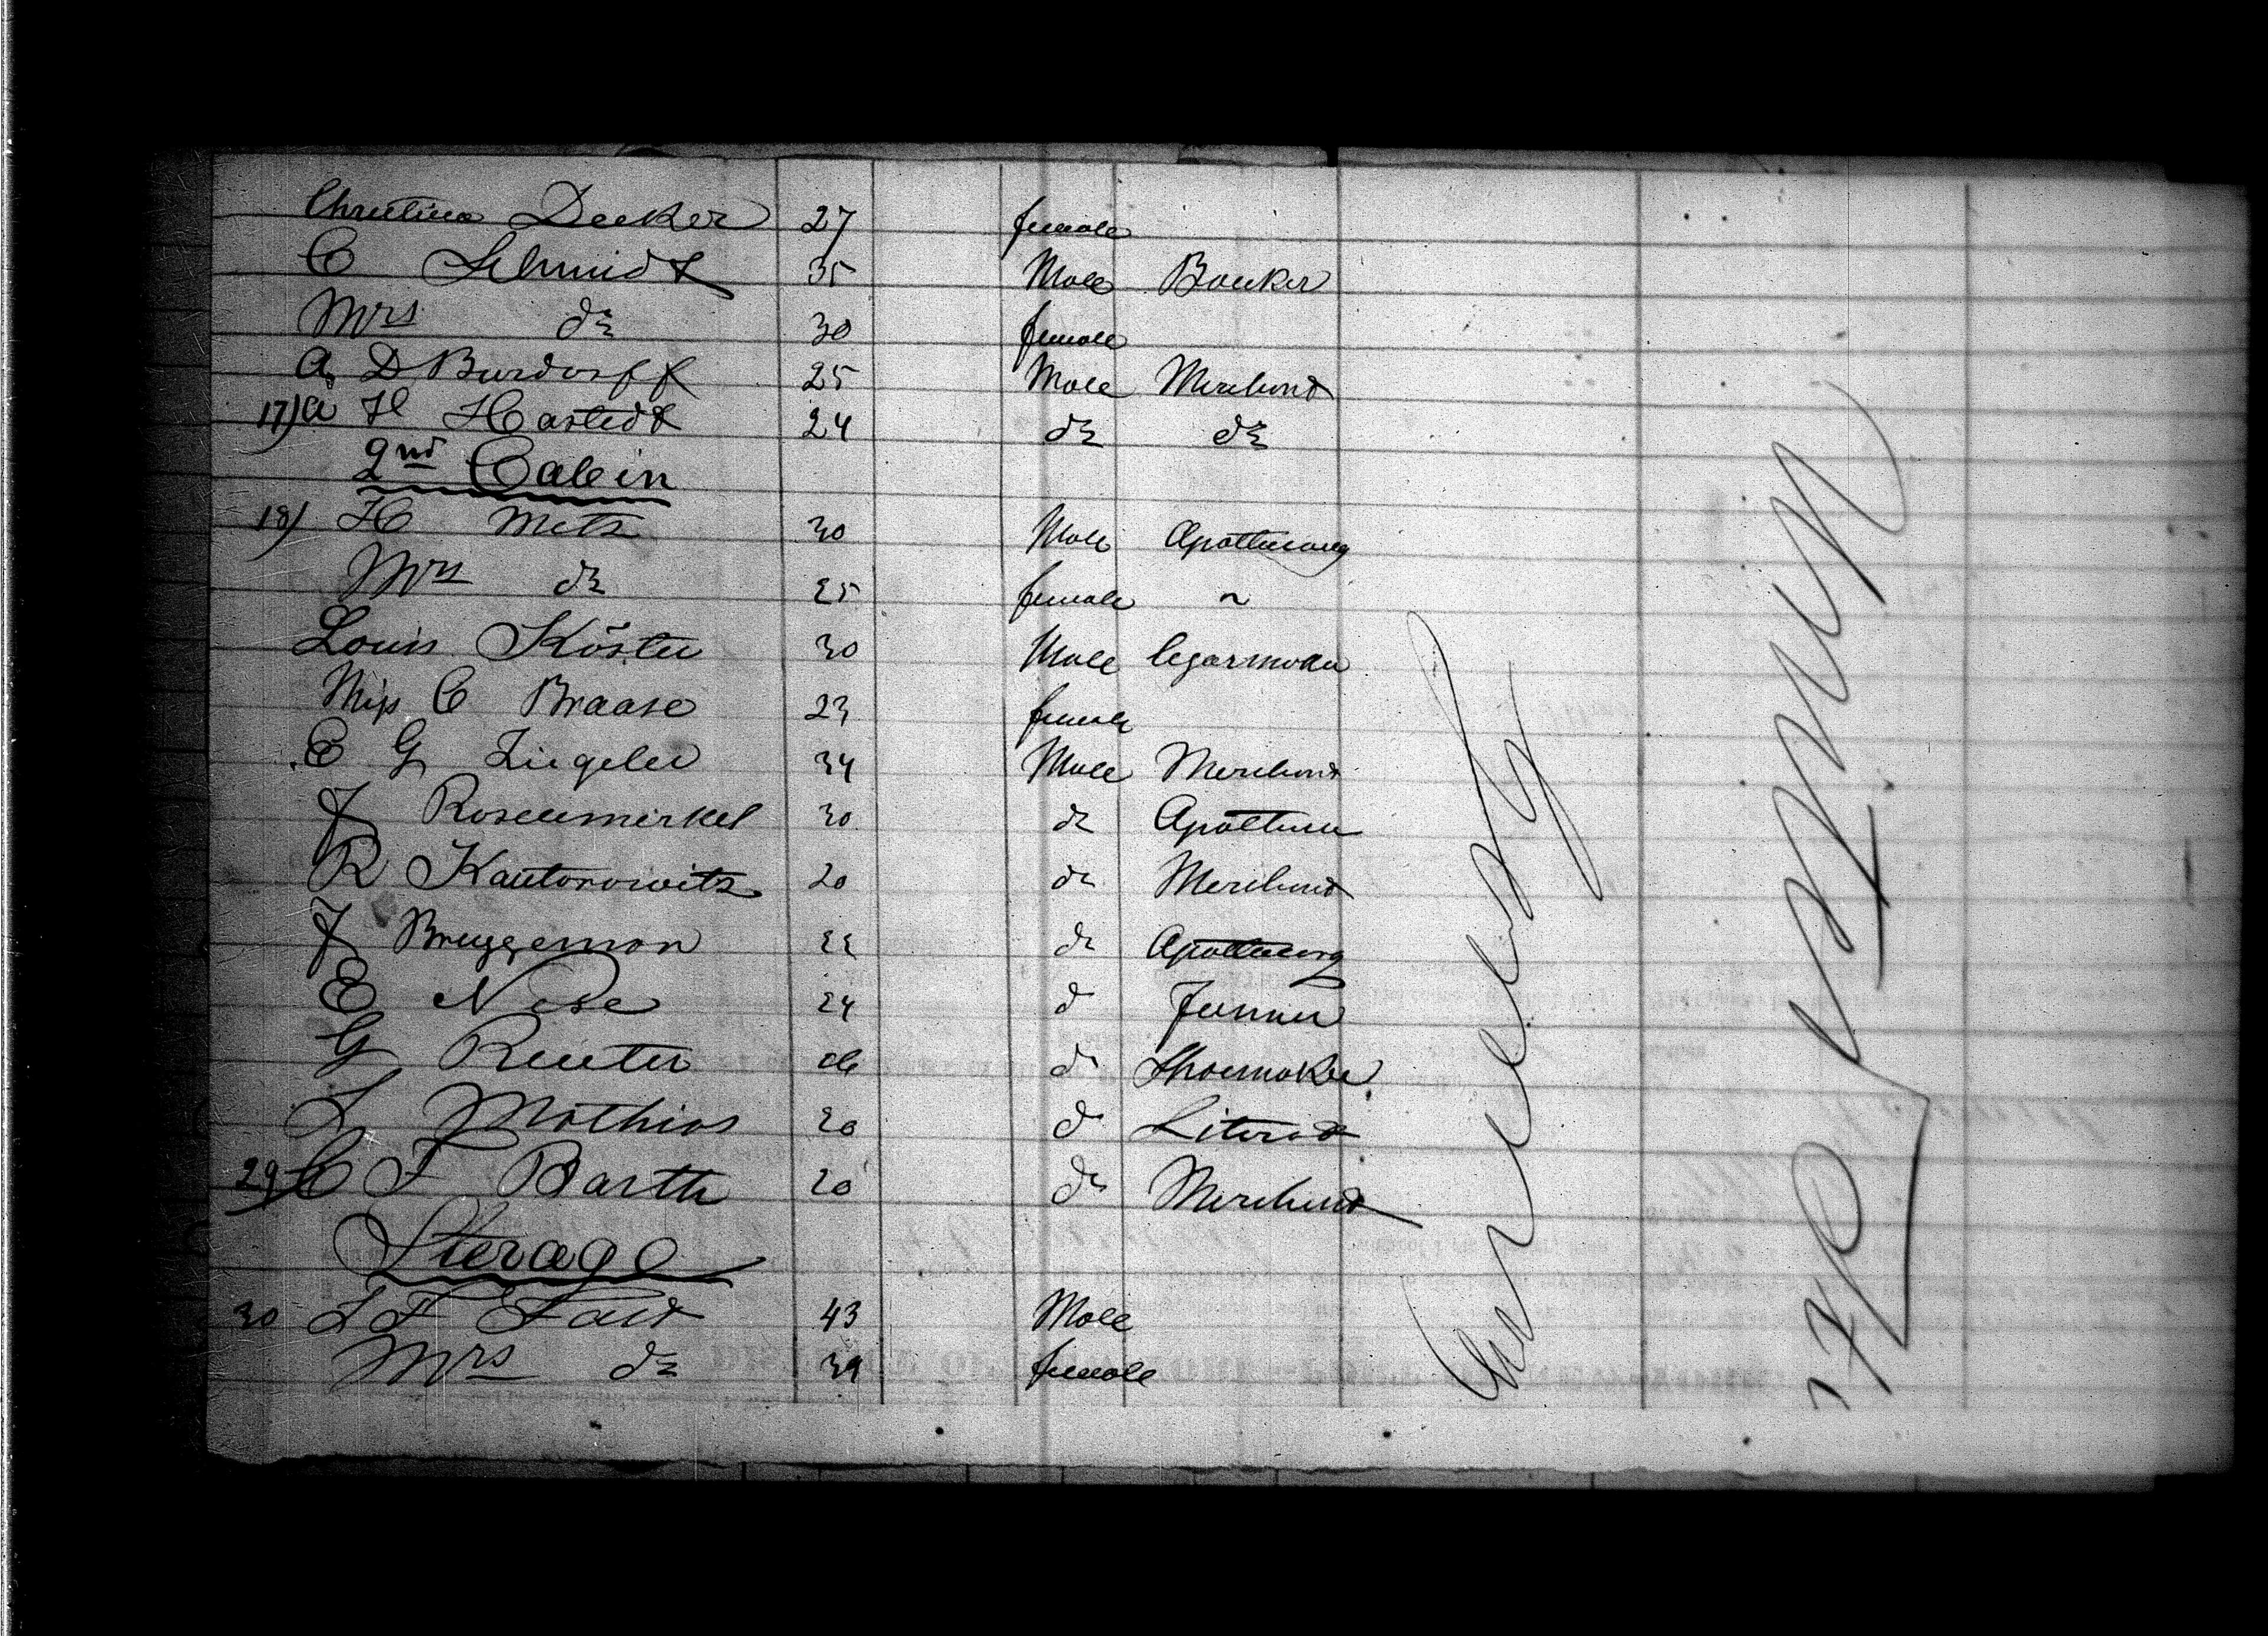 Christina Decker 27 female
C Schmidt 35 Male Banker
Mrs do 30 female
A. D Burdorff 25 Male Merchant
17) A H Hastedt 24 do do
2nd Cabin
18) H Metz 30 Male Apothecary
Mrs do 25 female ~
Louis Köster 30 Male Cegarmaker
Miss C Braase 23 female
C G Ziegeler 34 Male Merchant
J Rosenmerkel 30 do
R Kantorowitz 20 do Merchant
J Bruggeman 22 do Apothecary
E Nese 24 d Farmer
G Reuter d Shoemaker
L Mathias 20 d Literat
29) C F Barth 20 do Merchant
Sterage
30 L F 43 Male
Mrs do 39 female
Germany
United